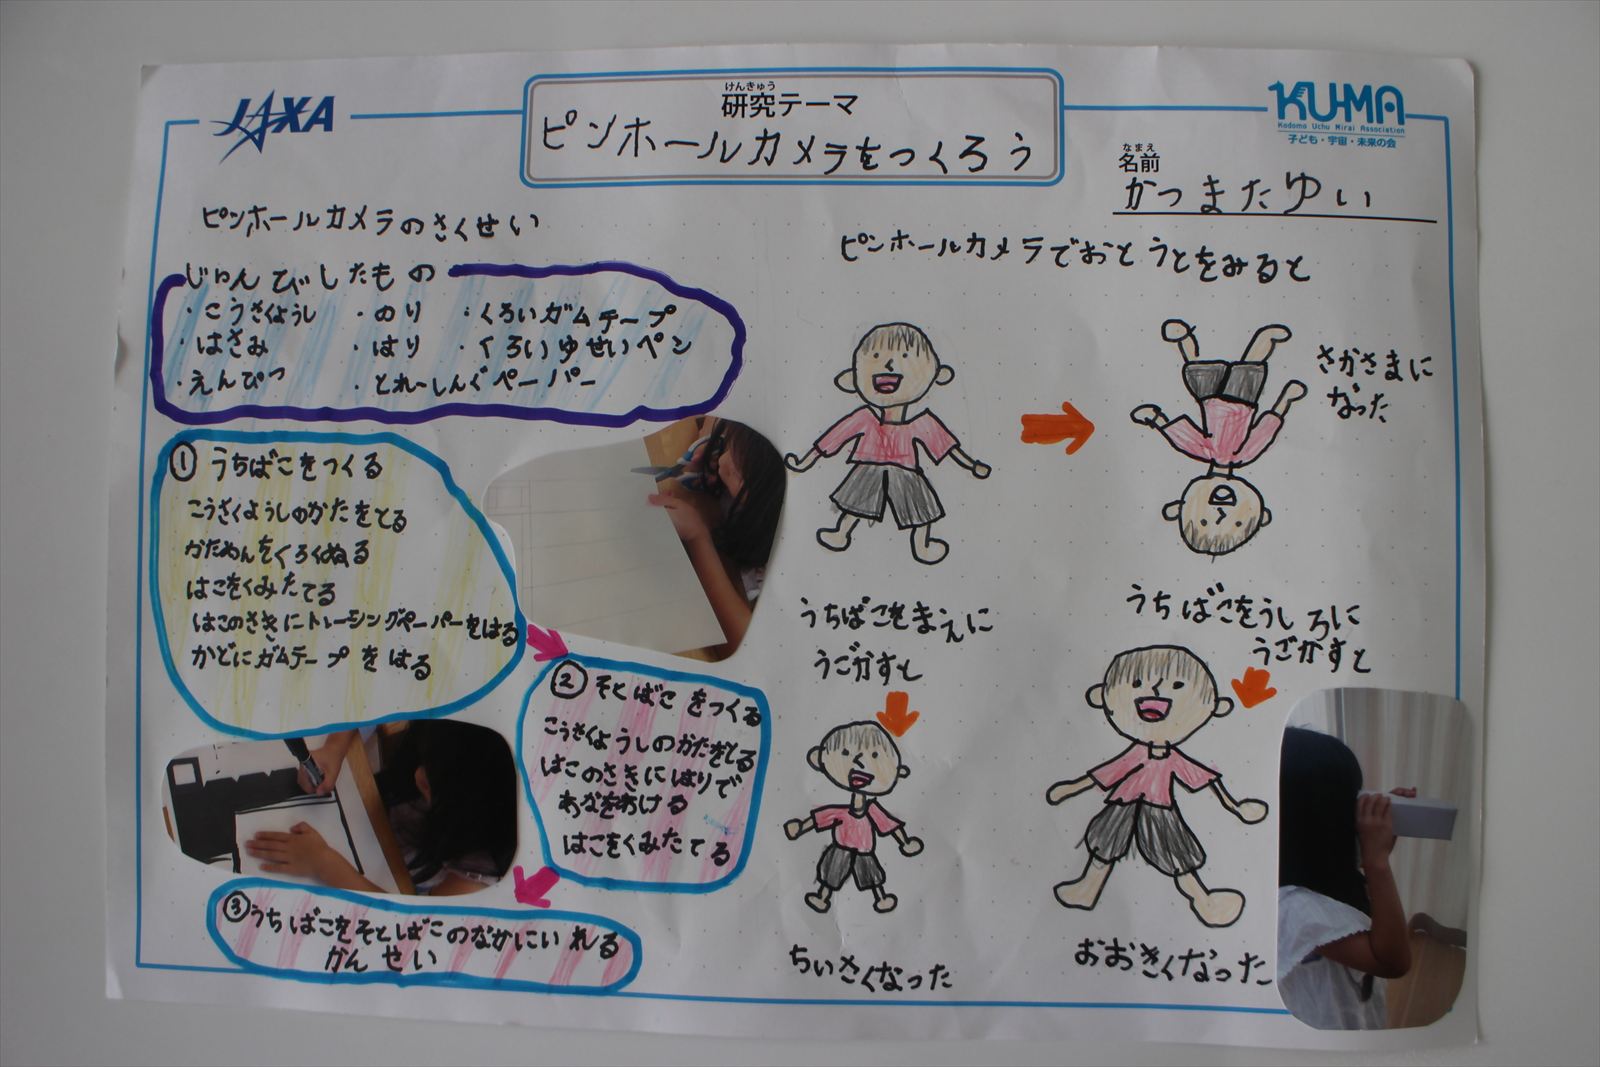 JAXA
けんきゅう
研究テーマ
ピンホールカメラをつくろう
KU-MA
Kodomo Uchu Mirai Association
子ども・宇宙・未来の会
なまえ
名前
かつまたゆい
ピンホールカメラのさくせい
じゅんびしたもの
・こうさくようし ・のり ・くろいガムテープ
・はさみ ・はり ・くろいゆせいペン
・えんぴつ ・とれーしんぐペーパー
① うちばこをつくる
こうさくようしのかたをてる
かためんをくろくぬる
はこをくみたてる
はこのさきにトレーシングペーパーをはる
かどにガムテープをはる
② そとばこをつくる
こうさくようしのかたをてる
はこのさきにはりで
あなをあける
はこをくみたてる
③うちばこをそとばこのなかにいれる
かんせい
ピンホールカメラでおとうとをみると
さかさまに
なった
うちばこをまえに
うごかすと
ちいさくなった
うちばこをうしろに
うごかすと
おおきくなった